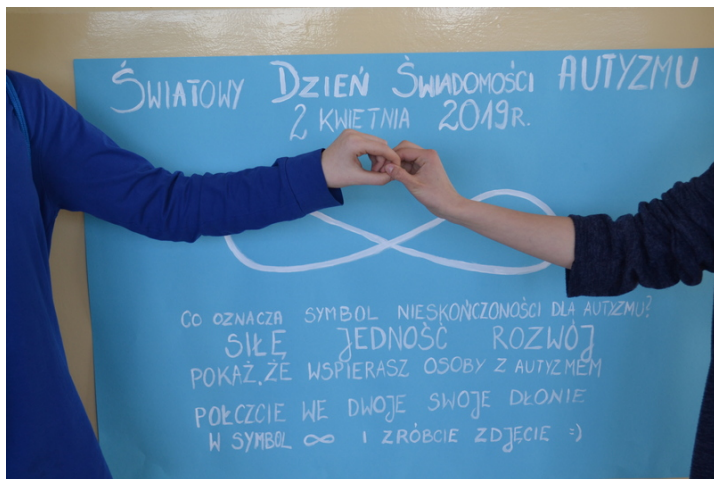 ŚWIATOWY DZIEŃ ŚWIADOMOŚCI AUTYZMU
2 KWIETNIA 2019R.
CO OZNACZA SYMBOL NIESKOŃCZONOŚCI DLA AUTYZMU?
SIŁĘ JEDNOŚĆ ROZWÓJ
POKAŻ, ŻE WSPIERASZ OSOBY Z AUTYZMEM
POŁCZCIE WE DWOJE SWOJE DŁONIE
W SYMBOL ∞ I ZRÓBCIE ZDJĘCIE :)